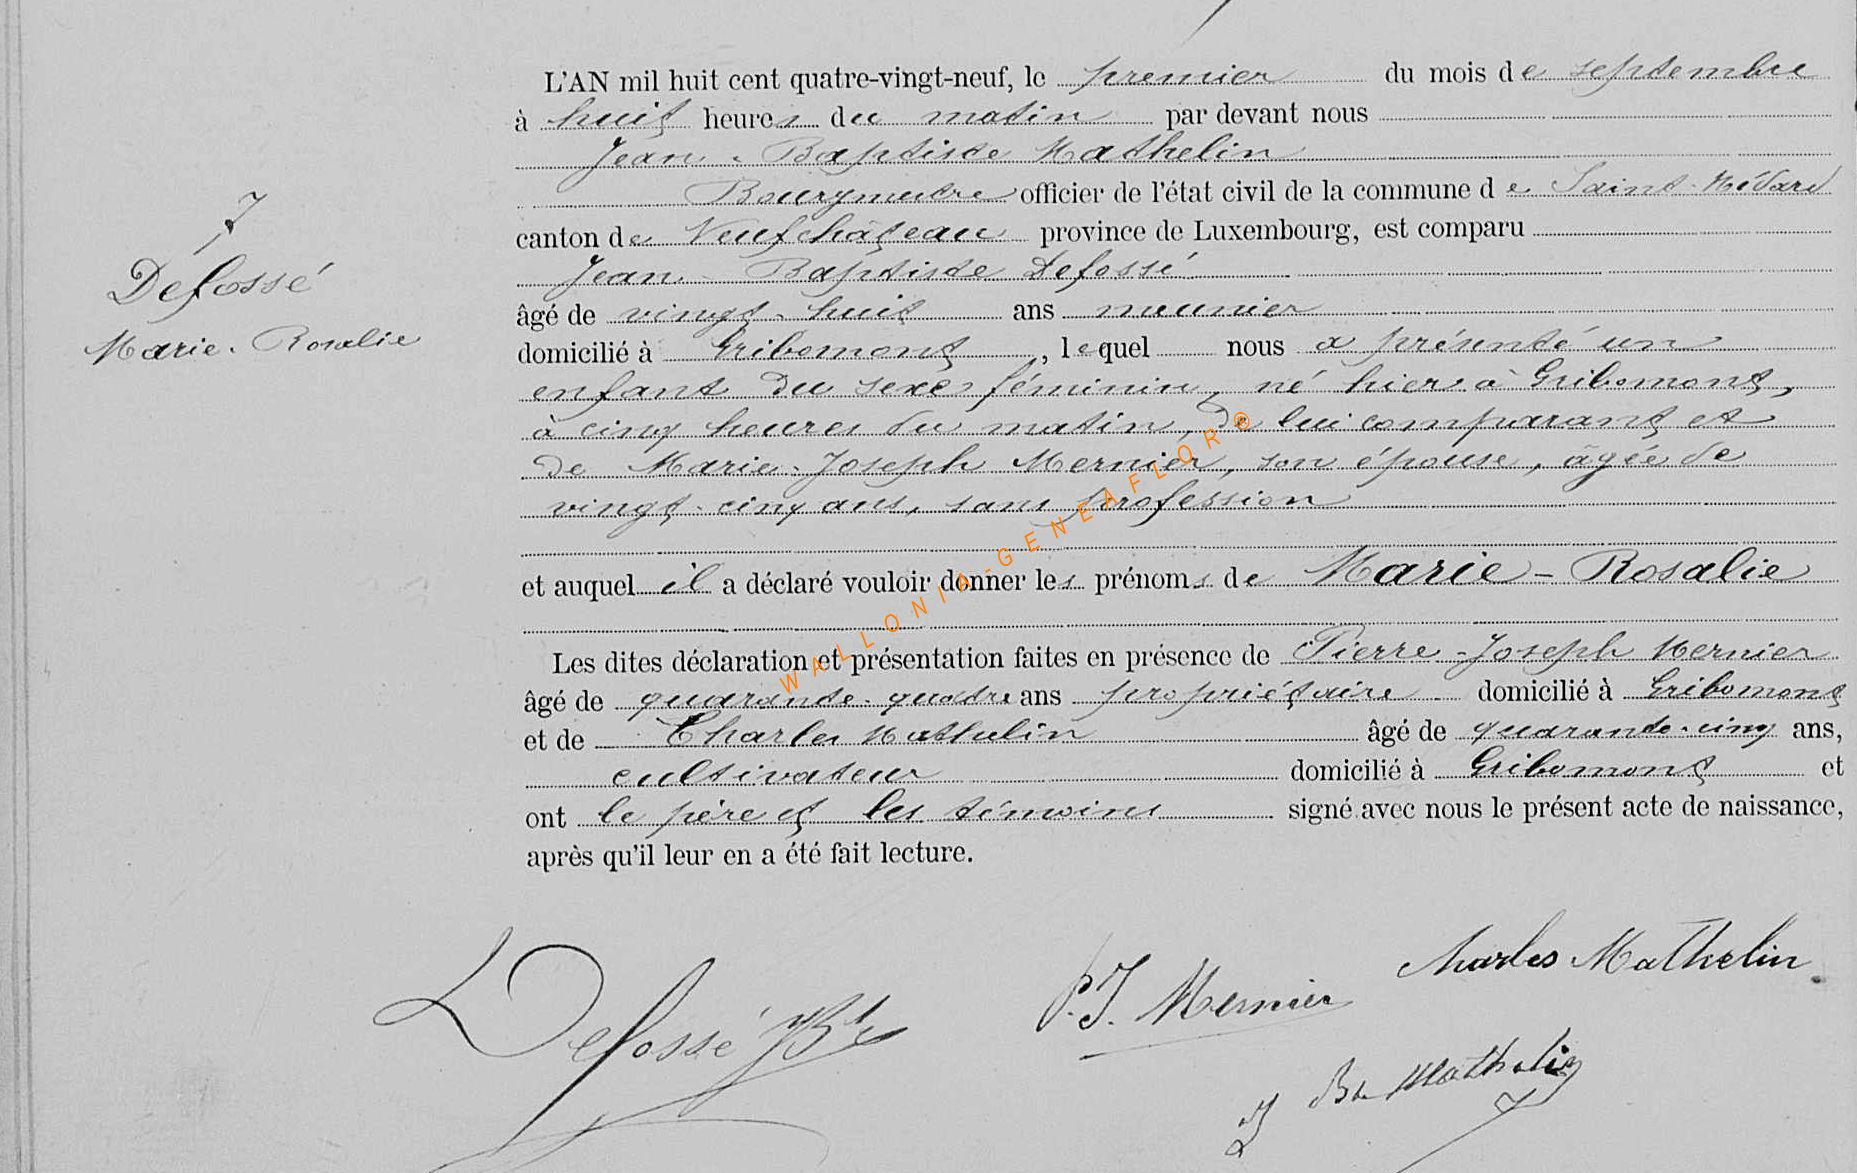 L'AN mil huit cent quatre-vingt-neuf, le premier du mois de septembre
à huit heures du matin par devant nous
Jean-Baptiste Mathelin
Bourgmestre officier de l'état civil de la commune de Saint-Médard
canton de Neufchâteau province de Luxembourg, est comparu
Jean-Baptiste Défossé
âgé de vingt-huit ans meunier
domicilié à Gribomont, lequel nous a présenté un
enfant du sexe féminin, né hier à Gribomont,
à cinq heures du matin, de lui comparant et
de Marie-Joseph Mernier, son épouse, âgée de
vingt-cinq ans, sans profession
et auquel il a déclaré vouloir donner les prénoms de Marie-Rosalie
Les dites déclaration et présentation faites en présence de Pierre-Joseph Mernier
âgé de quarante-quatre ans propriétaire domicilié à Gribomont
et de Charles Mathelin âgé de quarante-cinq ans,
cultivateur domicilié à Gribomont et
ont le père et les témoins signé avec nous le présent acte de naissance,
après qu'il leur en a été fait lecture.
7
Défossé
Marie-Rosalie
WALLONIA-GENEAFLOR®
Defossé JBte
P.J. Mernier
Charles Mathelin
J Bte Mathelin